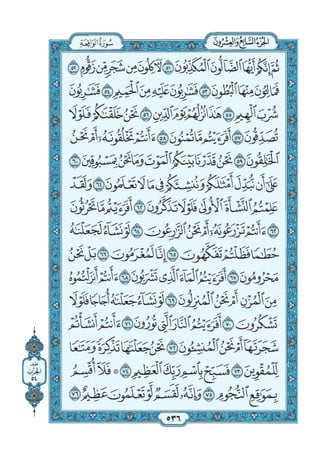 الجزء السابع والعشرون سورة الواقعة
ثُمَّ إِنَّكُمْ أَيُّهَا ٱلضَّآلُّونَ ٱلْمُكَذِّبُونَ ٥١ لَأٓكِلُونَ مِن شَجَرٍ مِّن زَقُّومٍ ٥٢
فَمَالِـُٔونَ مِنْهَا ٱلْبُطُونَ ٥٣ فَشَٰرِبُونَ عَلَيْهِ مِنَ ٱلْحَمِيمِ ٥٤ فَشَٰرِبُونَ
شُرْبَ ٱلْهِيمِ ٥٥ هَٰذَا نُزُلُهُمْ يَوْمَ ٱلدِّينِ ٥٦ نَحْنُ خَلَقْنَٰكُمْ فَلَوْلَا
تُصَدِّقُونَ ٥٧ أَفَرَءَيْتُم مَّا تُمْنُونَ ٥٨ ءَأَنتُمْ تَخْلُقُونَهُۥٓ أَمْ نَحْنُ
ٱلْخَٰلِقُونَ ٥٩ نَحْنُ قَدَّرْنَا بَيْنَكُمُ ٱلْمَوْتَ وَمَا نَحْنُ بِمَسْبُوقِينَ ٦٠
عَلَىٰٓ أَن نُّبَدِّلَ أَمْثَٰلَكُمْ وَنُنشِئَكُمْ فِى مَا لَا تَعْلَمُونَ ٦١ وَلَقَدْ
عَلِمْتُمُ ٱلنَّشْأَةَ ٱلْأُولَىٰ فَلَوْلَا تَذَكَّرُونَ ٦٢ أَفَرَءَيْتُم مَّا تَحْرُثُونَ
٦٣ ءَأَنتُمْ تَزْرَعُونَهُۥٓ أَمْ نَحْنُ ٱلزَّٰرِعُونَ ٦٤ لَوْ نَشَآءُ لَجَعَلْنَٰهُ
حُطَٰمًا فَظَلْتُمْ تَفَكَّهُونَ ٦٥ إِنَّا لَمُغْرَمُونَ ٦٦ بَلْ نَحْنُ
مَحْرُومُونَ ٦٧ أَفَرَءَيْتُمُ ٱلْمَآءَ ٱلَّذِى تَشْرَبُونَ ٦٨ ءَأَنتُمْ أَنزَلْتُمُوهُ
مِنَ ٱلْمُزْنِ أَمْ نَحْنُ ٱلْمُنزِلُونَ ٦٩ لَوْ نَشَآءُ جَعَلْنَٰهُ أُجَاجًا فَلَوْلَا
تَشْكُرُونَ ٧٠ أَفَرَءَيْتُمُ ٱلنَّارَ ٱلَّتِى تُورُونَ ٧١ ءَأَنتُمْ أَنشَأْتُمْ
شَجَرَتَهَآ أَمْ نَحْنُ ٱلْمُنشِـُٔونَ ٧٢ نَحْنُ جَعَلْنَٰهَا تَذْكِرَةً وَمَتَٰعًا
لِّلْمُقْوِينَ ٧٣ فَسَبِّحْ بِٱسْمِ رَبِّكَ ٱلْعَظِيمِ ٧٤ ۞ فَلَآ أُقْسِمُ
بِمَوَٰقِعِ ٱلنُّجُومِ ٧٥ وَإِنَّهُۥ لَقَسَمٌ لَّوْ تَعْلَمُونَ عَظِيمٌ ٧٦
٥٣٦
الحزب
٥٤